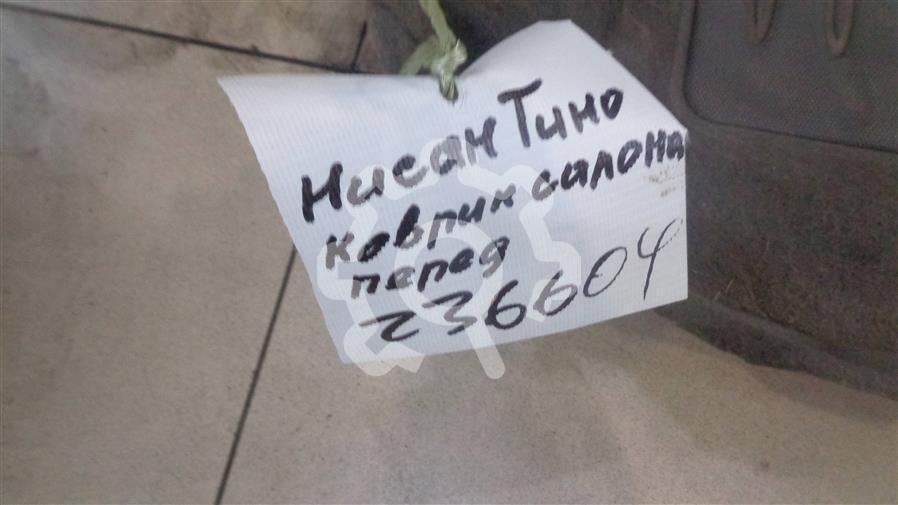 Нисан Тино
коврик салона
перед
236604